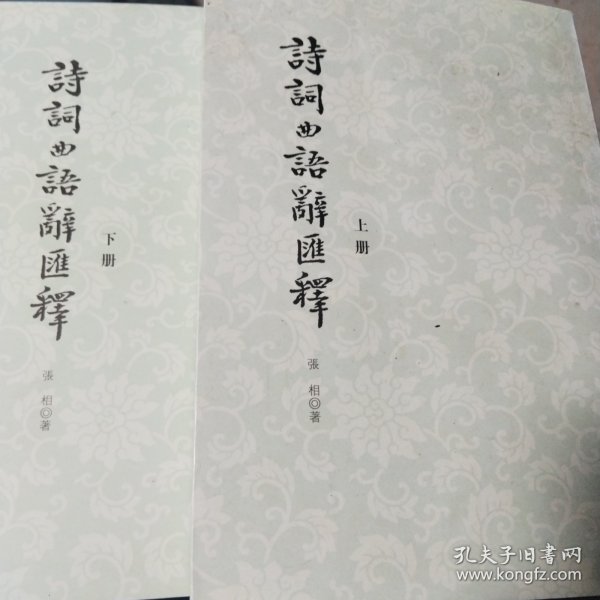 詩詞曲語辭匯釋
下册
張相◎著
詩詞曲語辭匯釋
上册
張相◎著
孔夫子旧书网
www.kongfz.com